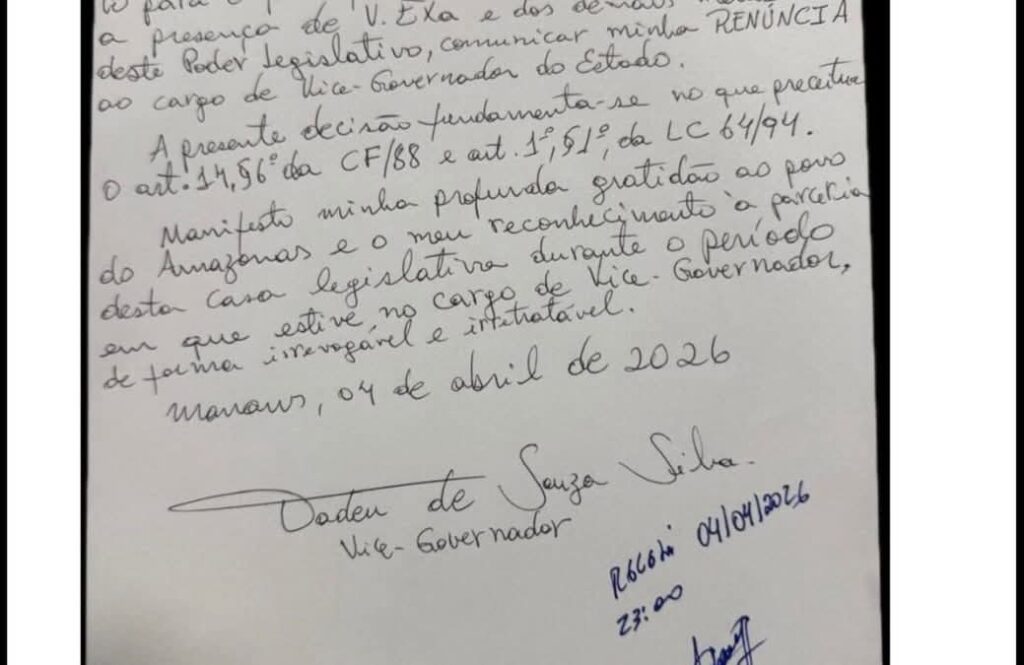 to para
a presença de V. EXa e dos demais
deste Poder Legislativo, comunicar minha RENÚNCIA
ao cargo de Vice-Governador do Estado.
A presente decisão fundamenta-se no que preceitua
o art. 14, §6º da CF/88 e art. 1º, §1º, da LC 64/94.
Manifesto minha profunda gratidão ao povo
do Amazonas e o meu reconhecimento à parceria
desta Casa legislativa durante o período
em que estive no cargo de Vice-Governador,
de forma irrevogável e irretratável.
Manaus, 04 de abril de 2026
Tadeu de Souza Silva.
Vice-Governador
Recebi 04/04/2026
23:00